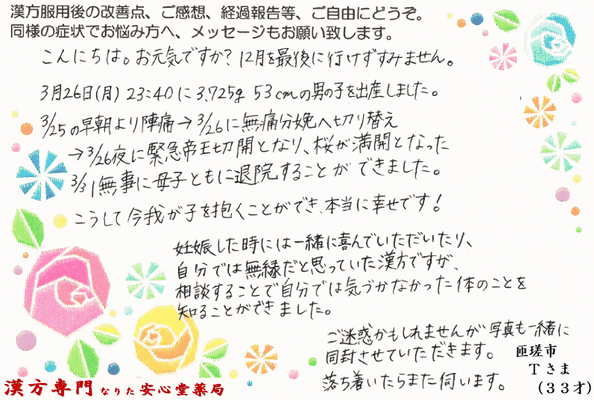 漢方服用後の改善点、ご感想、経過報告等、ご自由にどうぞ。
同様の症状でお悩み方へ、メッセージもお願い致します。
こんにちは。お元気ですか？12月を最後に行けずすみません。
3月26日(月) 23:40に3,725g 53cmの男の子を出産しました。
3/25の早朝より陣痛→3/26に無痛分娩へ切り替え
→3/26夜に緊急帝王切開となり、桜が満開となった
3/31無事に母子ともに退院することができました。
こうして今我が子を抱くことができ、本当に幸せです！
妊娠した時には一緒に喜んでいただいたり、
自分では無縁だと思っていた漢方ですが、
相談することで自分では気づかなかった体のことを
知ることができました。
ご迷惑かもしれませんが写真も一緒に
同封させていただきます。
落ち着いたらまた伺います。
匝瑳市
Tさま
(33才)
漢方専門 なりた安心堂薬局